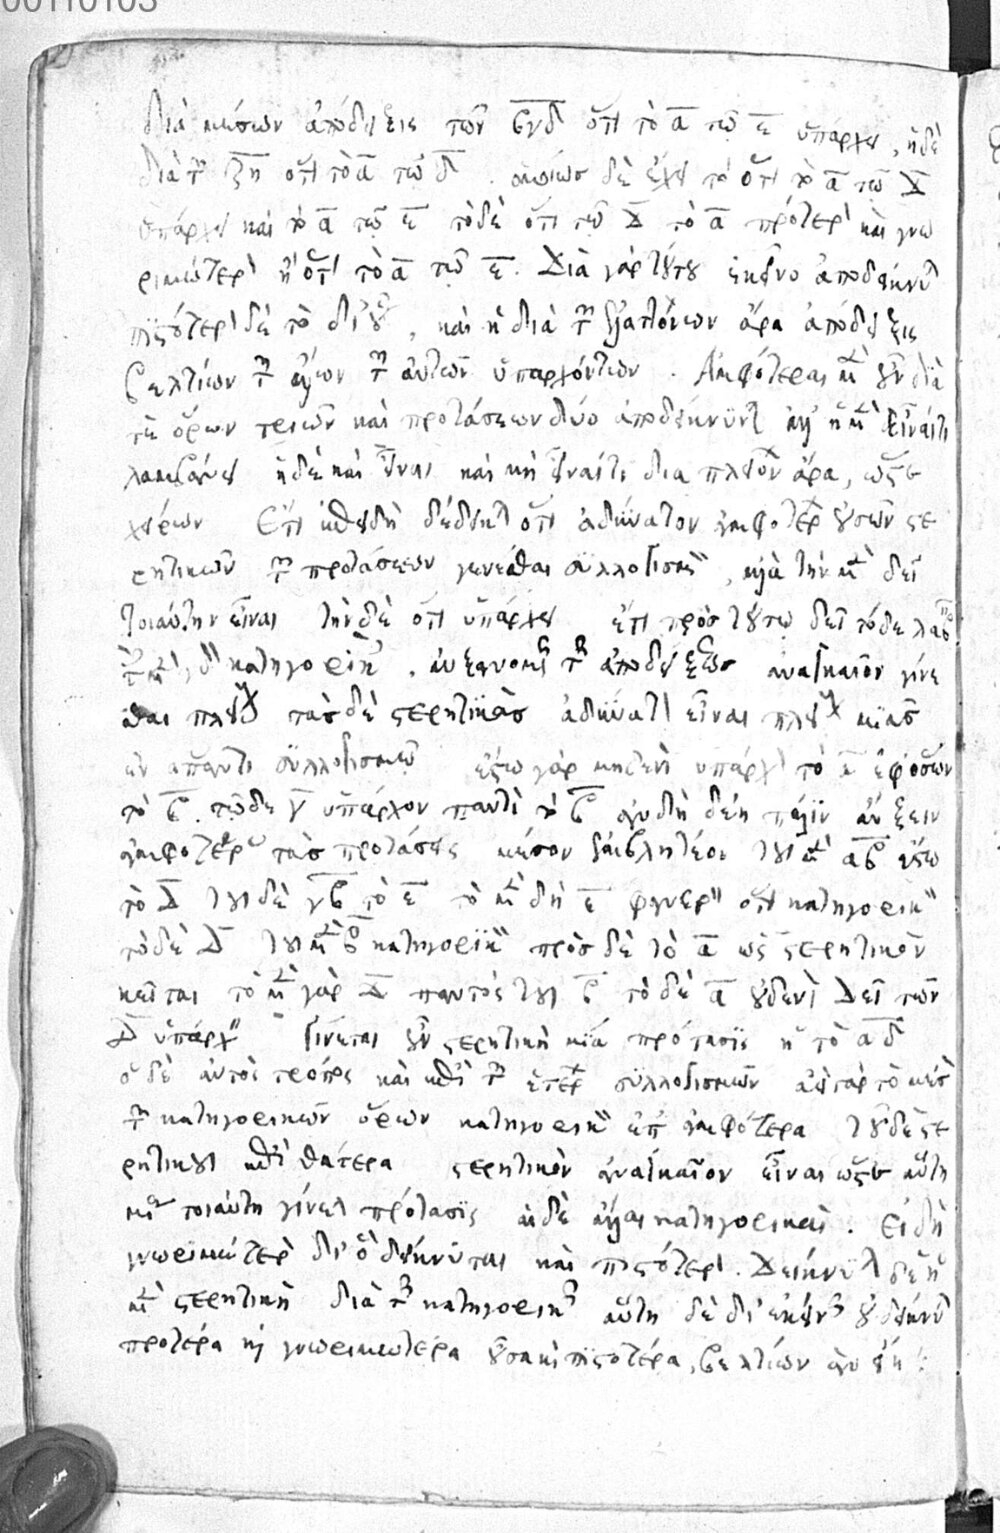 00110103
διὰ μέσων ἀπόδειξις τῶν βγδ ὅτι τὸ α τῷ ε ὑπάρχει, ἡ δὲ
διὰ τῶν ζη ὅτι τὸ α τῷ δ. ὁμοίως δὲ ἔχει τὸ ὅτι τὸ α τῷ Δ
ὑπάρχει καὶ τὸ α τῷ ε τὸ δὲ ὅτι τῷ Δ τὸ α πρότερον καὶ γνω
ριμώτερον ἢ ὅτι τὸ α τῷ ε. Διὰ γὰρ τούτου ἐκεῖνο ἀποδείκνυται
πιστότερον δὲ τὸ δι' οὗ, καὶ ἡ διὰ τῶν ἐλαττόνων ἄρα ἀπόδειξις
βελτίων τῶν ἄλλων τῶν αὐτῶν ὑπαρχόντων. Ἀμφότεραι μὲν οὖν διὰ
τε ὅρων τριῶν καὶ προτάσεων δύο ἀποδείκνυνται ἀλλ' ἡ μὲν εἶναί τι
λαμβάνει ἡ δὲ καὶ εἶναι καὶ μὴ εἶναί τι δια πλειόνων ἄρα, ὥστε
χείρων Ἔτι ἐπειδὴ δέδεικται ὅτι ἀδύνατον ἀμφοτέρων οὐσῶν στε
ρητικῶν τῶν προτάσεων γενέσθαι συλλογισμὸν, ἀλλὰ τὴν μὲν δεῖ
τοιαύτην εἶναι τὴν δὲ ὅτι ὑπάρχει ἔτι πρὸς τούτῳ δεῖ τόδε λαβεῖν
τὰς μὲν γὰρ κατηγορικὰς, αὐξανομένης τῆς ἀποδείξεως ἀναγκαῖον γίνε
σθαι πλείους τὰς δὲ στερητικὰς ἀδύνατον εἶναι πλείους μιᾶς
ἐν ἅπαντι συλλογισμῷ ἔστω γὰρ μηδενὶ ὑπάρχον τὸ α ἐφ' ὅσων
τὸ β τῷ δε γ ὑπάρχον παντὶ τὸ β ἂν δὴ δέῃ πάλιν αὔξειν
ἀμφοτέρας τὰς προτάσεις μέσον ἐμβλητέον τοῦ μὲν αβ ἔστω
τὸ Δ τοῦ δὲ γβ τὸ ε τὸ μὲν δὴ ε φανερὸν ὅτι κατηγορικὸν
τὸ δὲ Δ τοῦ μὲν β κατηγορικὸν πρὸς δὲ τὸ α ὡς στερητικὸν
κεῖται τὸ μὲν γὰρ Δ παντὸς τοῦ β τὸ δὲ α οὐδενὶ Δεῖ τῶν
Δ ὑπάρχειν Γίνεται οὖν στερητικὴ μία πρότασις ἡ τὸ αδ
ὁ δὲ αὐτὸς τρόπος καὶ ἐπὶ τῶν ἑτέρων συλλογισμῶν ἀεὶ γὰρ τὸ μέσον
τῶν κατηγορικῶν ὅρων κατηγορικὸν ἐπ' ἀμφότερα τοῦ δὲ στε
ρητικοῦ ἐπὶ θάτερα στερητικὸν ἀναγκαῖον εἶναι ὥστε αὕτη
μία τοιαύτη γίνεται πρότασις αἱ δὲ ἄλλαι κατηγορικαὶ. εἰ δὴ
γνωριμώτερον δι' ὃ δείκνυται καὶ πιστότερον. Δείκνυται δὲ ἡ
μὲν στερητικὴ διὰ τῆς κατηγορικῆς αὕτη δὲ δι' ἐκείνης οὐ δείκνυται
προτέρα καὶ γνωριμωτέρα οὖσα καὶ πιστοτέρα, βελτίων ἂν εἴη: